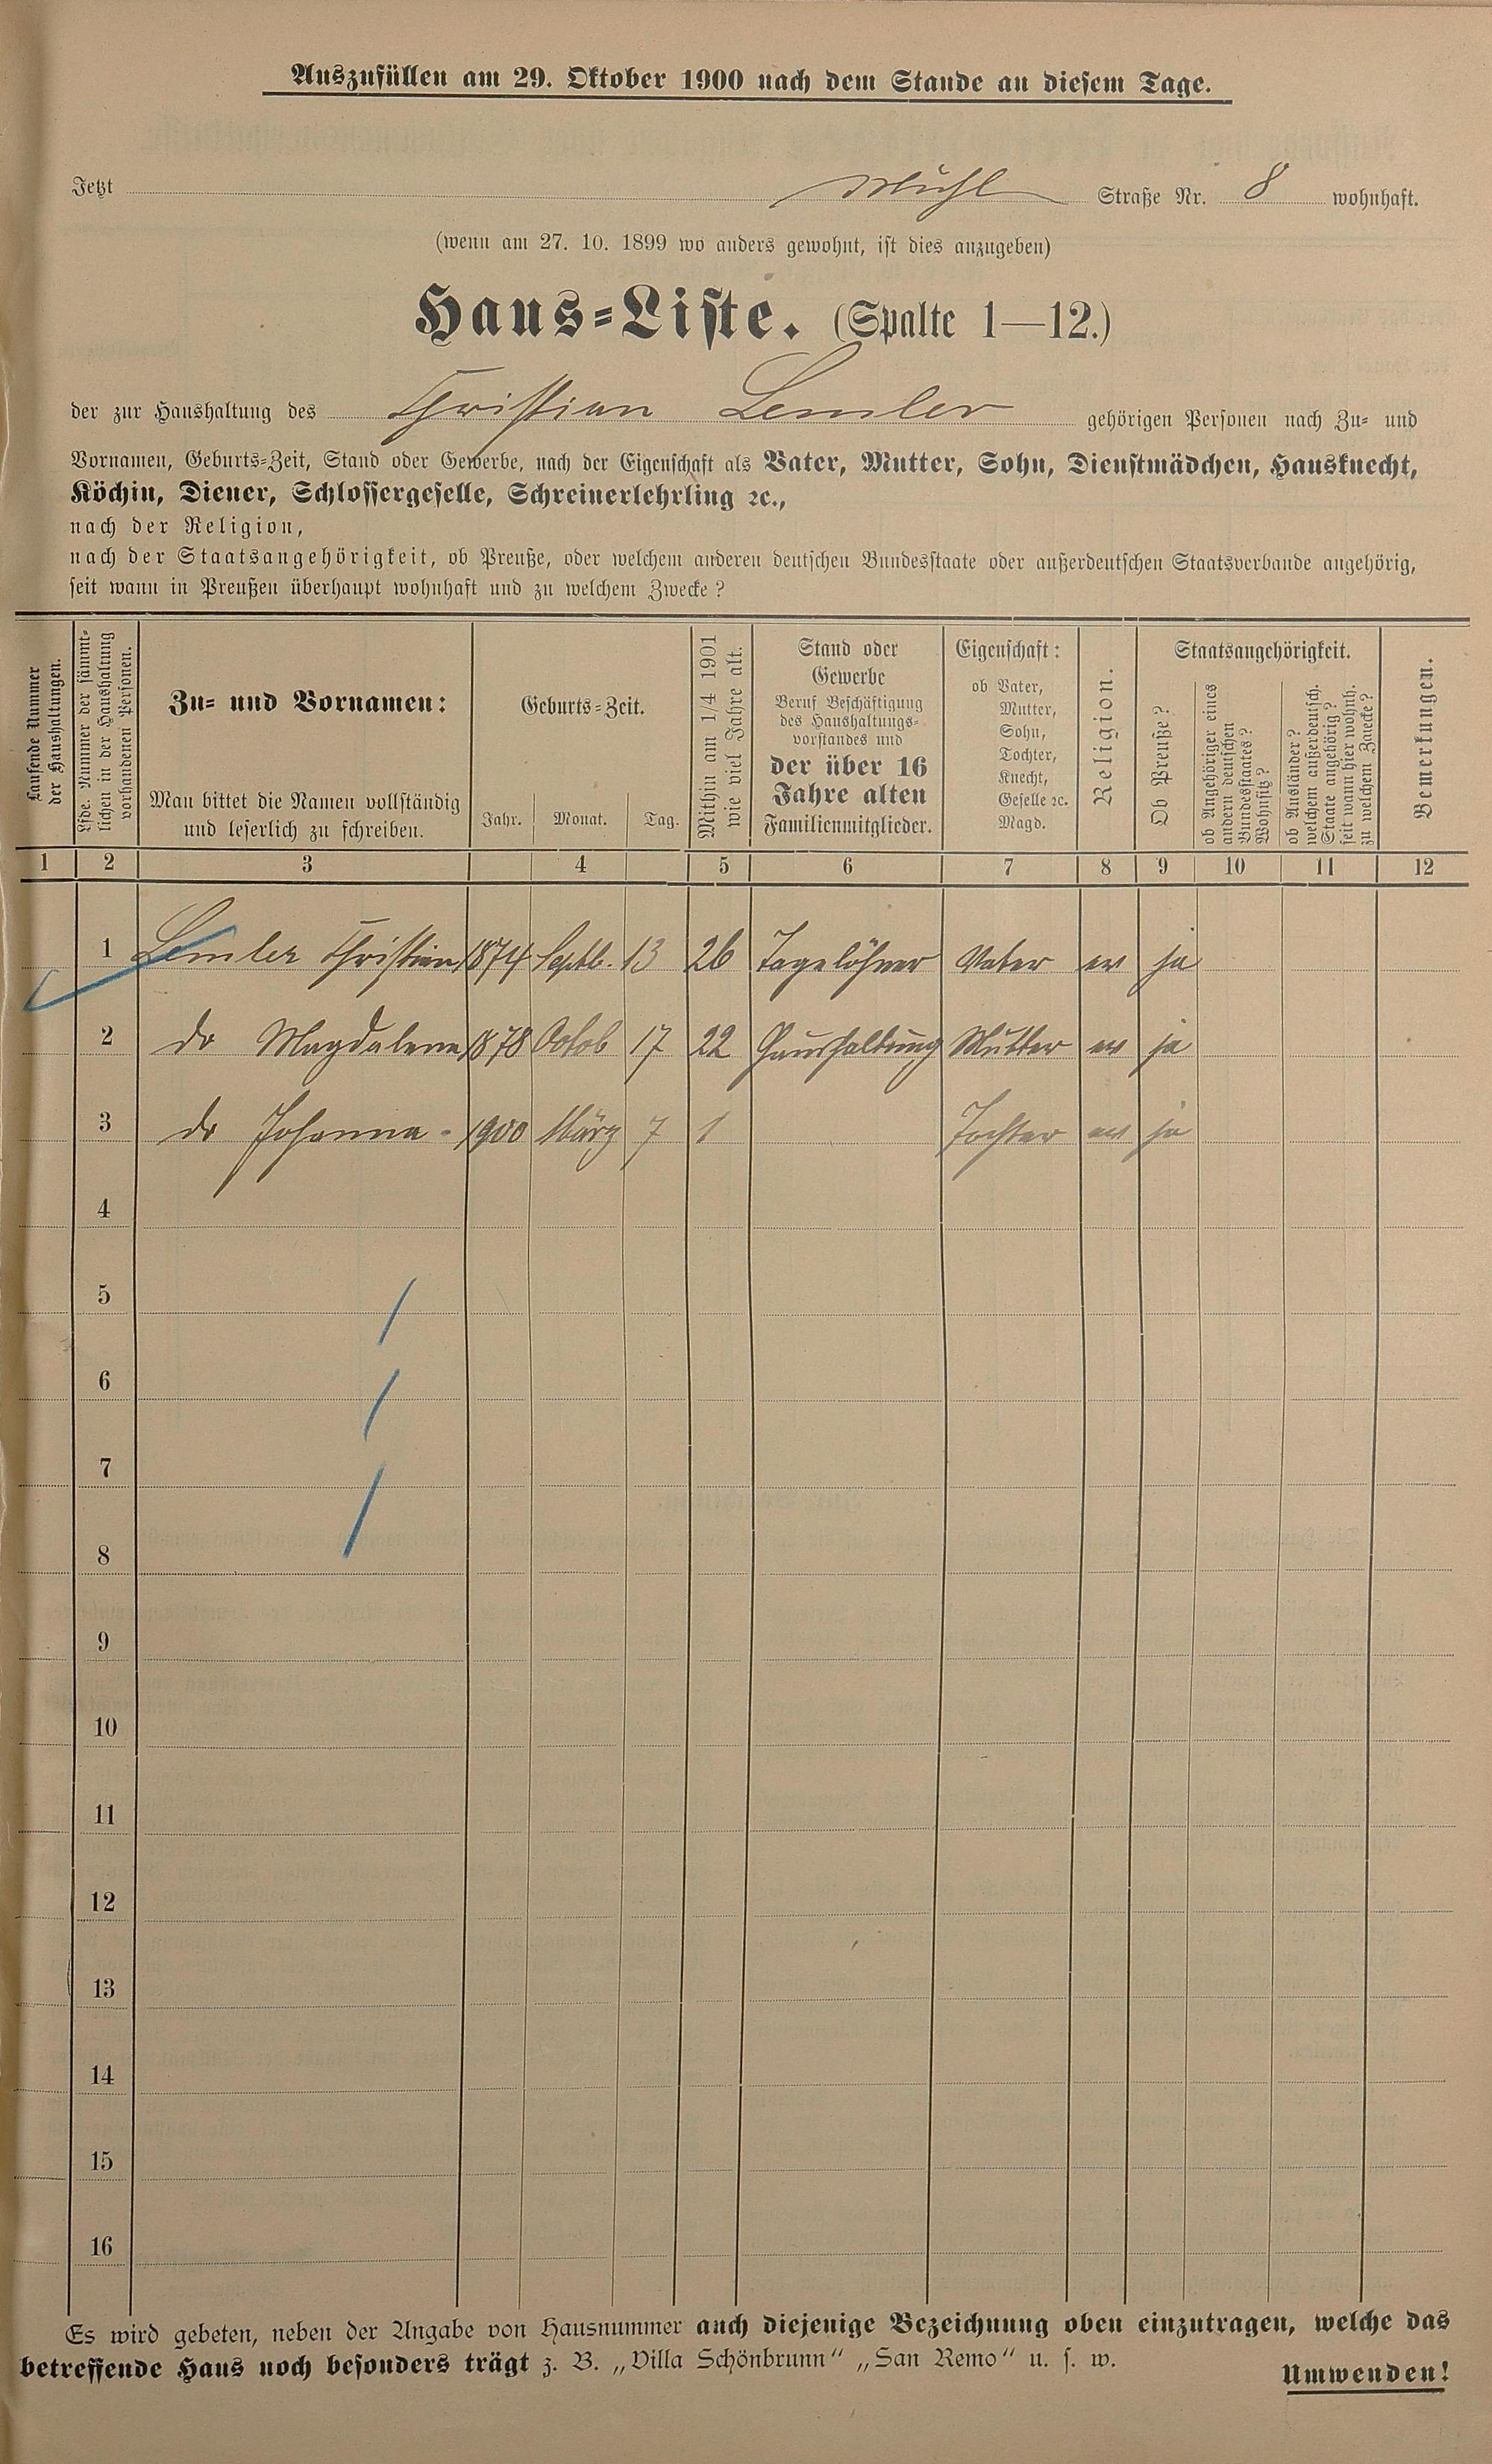 Auszufüllen am 29. Oktober 1900 nach dem Stande an diesem Tage.
Jetzt Mühl Straße Nr. 8 wohnhaft.
(wenn am 27. 10. 1899 wo anders gewohnt, ist dies anzugeben)
Haus=Liste. (Spalte 1—12.)
der zur Haushaltung des Christian Lemler gehörigen Personen nach Zu= und
Vornamen, Geburts=Zeit, Stand oder Gewerbe, nach der Eigenschaft als Vater, Mutter, Sohn, Dienstmädchen, Hausknecht,
Köchin, Diener, Schlossergeselle, Schreinerlehrling ꝛc.,
nach der Religion,
nach der Staatsangehörigkeit, ob Preuße, oder welchem anderen deutschen Bundesstaate oder außerdeutschen Staatsverbande angehörig,
seit wann in Preußen überhaupt wohnhaft und zu welchem Zwecke?
Laufende Nummer
der Haushaltungen.
Lfde. Nummer der sämmt=
lichen in der Haushaltung
vorhandenen Personen.
Zu= und Vornamen:
Man bittet die Namen vollständig
und leserlich zu schreiben.
Geburts=Zeit.
Jahr. Monat. Tag.
Mithin am 1/4 1901
wie viel Jahre alt.
Stand oder
Gewerbe
Beruf Beschäftigung
des Haushaltungs=
vorstandes und
der über 16
Jahre alten
Familienmitglieder.
Eigenschaft:
ob Vater,
Mutter,
Sohn,
Tochter,
Knecht,
Geselle ꝛc.
Magd.
Religion.
Staatsangehörigkeit.
Ob Preuße?
ob Angehöriger eines
andern deutschen
Bundesstaates?
Wohnsitz?
ob Ausländer?
welchem außerdeutsch.
Staate angehörig?
seit wann hier wohnh.
zu welchem Zwecke?
Bemerkungen.
1 2 3 4 5 6 7 8 9 10 11 12
1 Lemler Christian 1874 Septb. 13 26 Tagelöhner Vater ev ja
2 do Magdalena 1878 Octob 17 22 Haushaltung Mutter ev ja
3 do Johanna - 1900 März 7 1 Tochter ev ja
4
5
6
7
8
9
10
11
12
13
14
15
16
Es wird gebeten, neben der Angabe von Hausnummer auch diejenige Bezeichnung oben einzutragen, welche das
betreffende Haus noch besonders trägt z. B. „Villa Schönbrunn“ „San Remo“ u. s. w.
Umwenden!